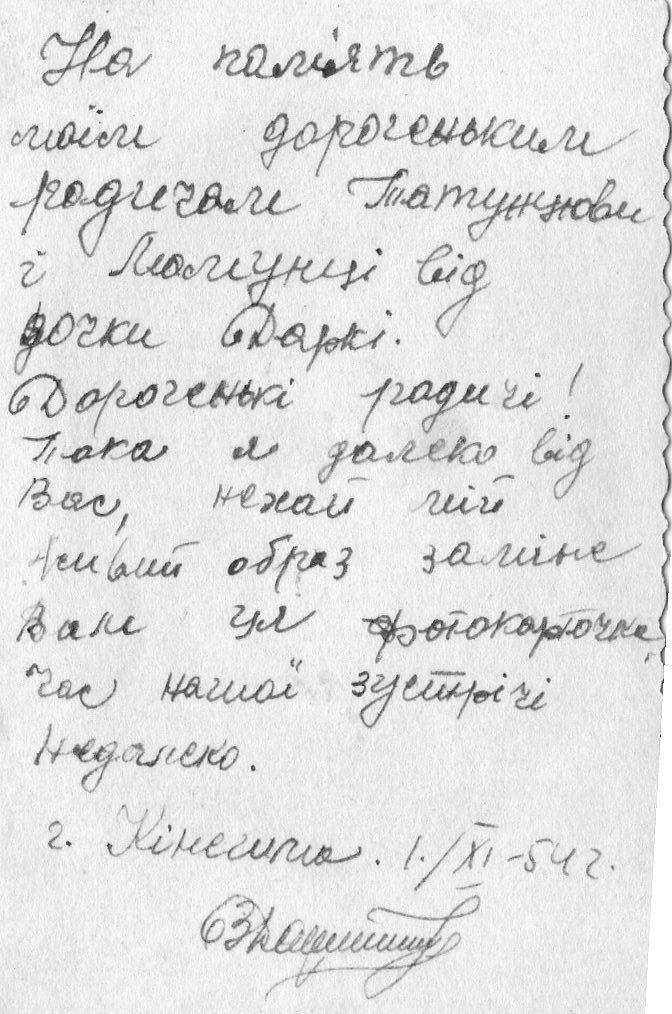 На пам'ять
моїм дорогеньким
радичам Татунцюви
і Мамунці від
дочки Даркі.
Дорогенькі радичі!
Пока я далеко від
Вас, нехай мій
живий образ заміне
Вам ця фотокарточка,
час нашої зустрічі
недалеко.
г. Кінешма. 1./XI-54 г.